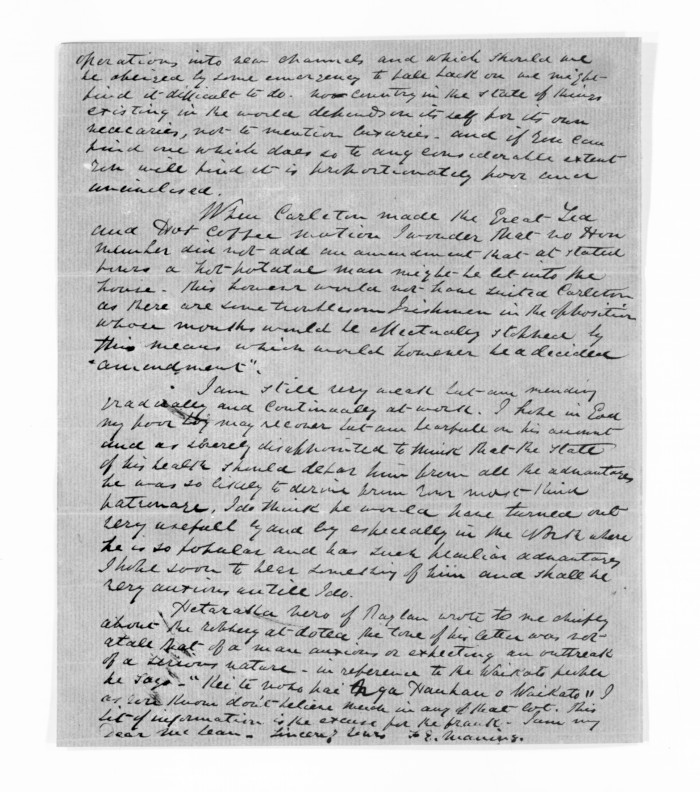 operations into new channels and which should we
be obliged by some emergency to fall back on we might
find it difficult to do. no country in the state of things
existing in the world depends on its self for its own
necessaries, not to mention luxuries - and if you can
find one which does so to any considerable extent
you will find it is proportionately poor and
uncivilised.
When Carleton made the Great Tea
and Hot Coffee motion I wonder that no Hon
member did not add an amendment that at stated
hours a hot potatoe man might be let into the
house - this however would not have suited Carleton
as there are some troublesom Irishmen in the opposition
whose mouths would be effectually stopped by
this means which would however be a decided
"amendment".
I am still very weak but am mending
gradually and continually at work. I hope in God
my poor boy may recover but am fearfull on his account
and as sincerely disappointed to think that the state
of his health should debar him from all the advantages
he was so likely to derive from your most kind
patronage, I do think he would have turned out
very usefull by and by especially in the North where
he is so popular and has such peculiar advantages
I hope soon to hear something of him and shall be
very anxious untill I do.
Hetaraka Nero of Raglan wrote to me chiefly
about the robbery at the tone of his letter was not
atall that of a man anxious or expecting an outbreak
of a serious nature - in reference to the Waikato people
he says - "Kei te noho pai nga Hauhau o Waikato" I
as you know don't believe much in any of that lot. This
bit of information is the excuse for the frank - I am my
Dear McLean - Sincerely Yours F E. Maning.